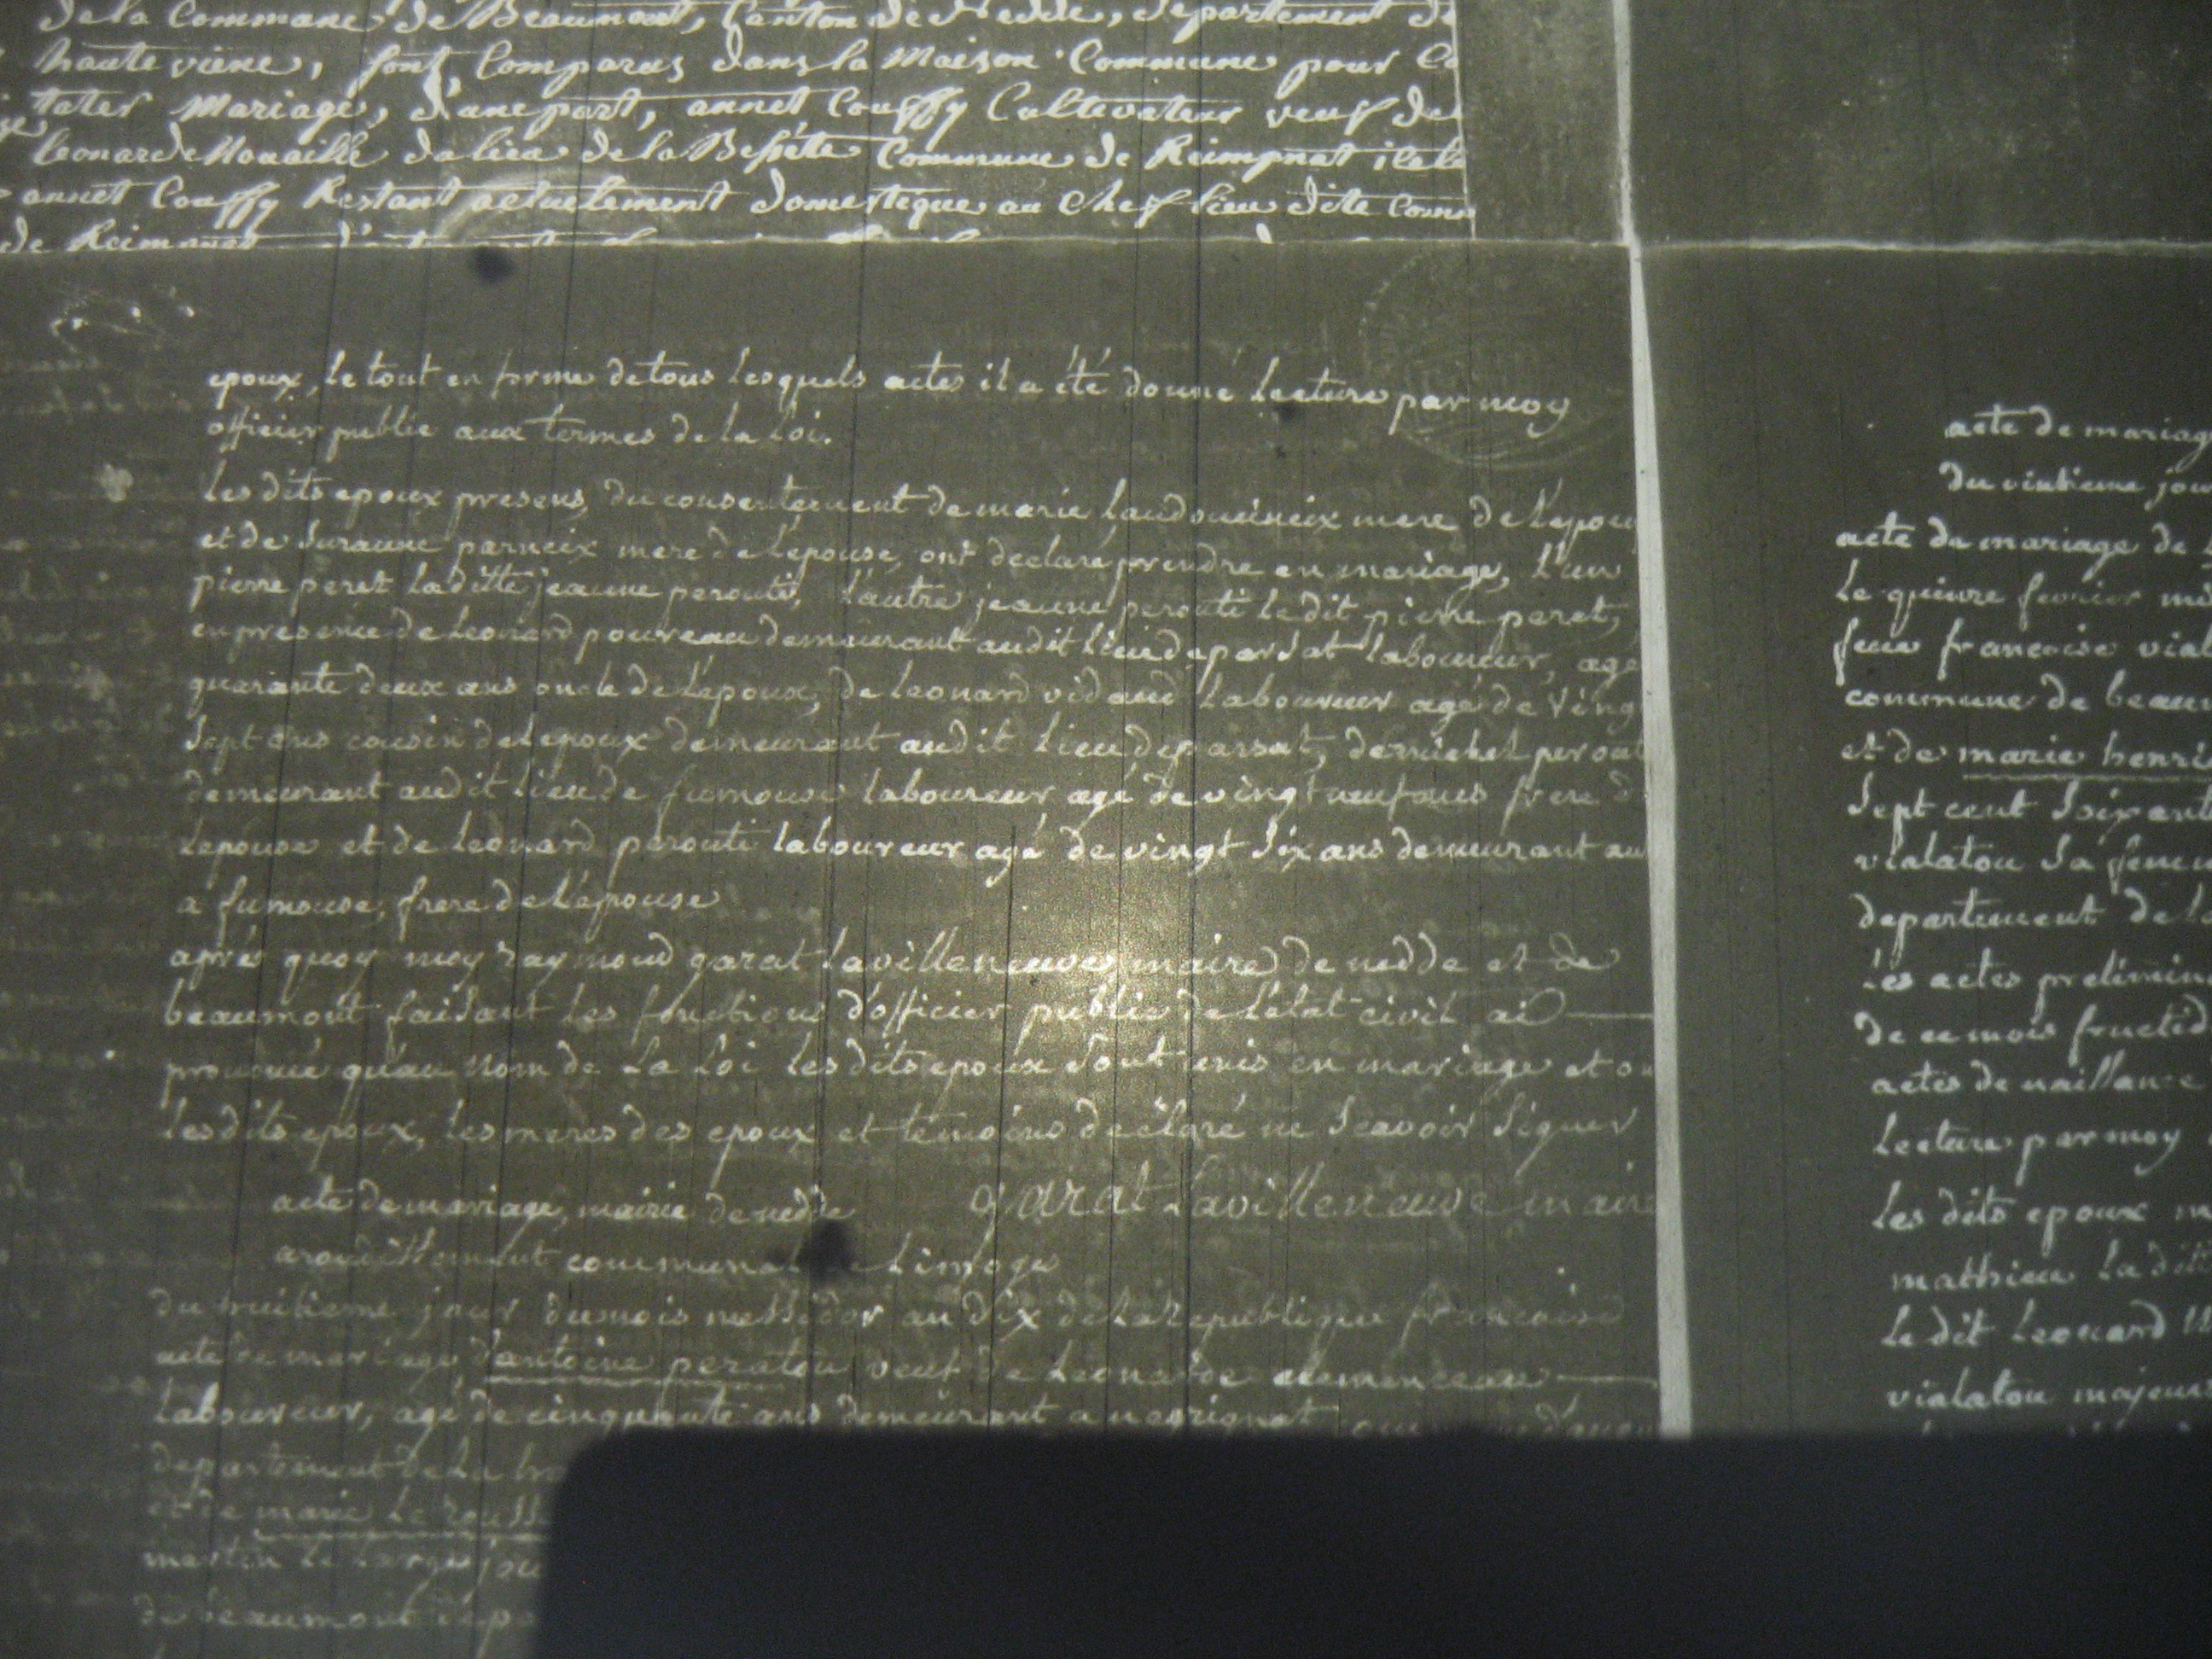 de la Commune de Beaumont, Canton de Nedde, departement de
haute viene, sont Comparus dans la Maison Commune pour
Mariage, d'une part, annet Couffy Cultivateur veuf de
leonarde Nouaille du lieu de la Commune de Reimpnat
annet Couffy Restant actuelement domestique au Chef lieu dite
de
epoux, le tout en forme de tous lesquels actes il a été donné lecture par moy
officier public aux termes de la loi.
les dits epoux presens, du consentement de marie mere de l'epoux
et de Suzanne parneix mere de l'epouse, ont declaré prendre en mariage, l'un
pierre peret laditte jeanne perouti, l'autre jeanne perouti le dit pierre peret,
en presence de leonard poureau demeurant audit lieu de parsat laboureur, agé
quarante deux ans oncle de l'epoux, de leonard vidaud laboureur agé de ving
sept ans cousin de l'epoux demeurant audit lieu de parsat, de michel perout
demeurant audit lieu de fumouse laboureur agé de vingt neuf ans frere d
lepouse et de leonard perouti laboureur agé de vingt six ans demeurant au
a fumouse, frere de l'épouse
après quoy moy raymond garat lavilleneuve, maire de nedde et de
beaumont faisant les fonctions d'officier public de l'etat civil ai
prononcé qu'au nom de la loi les dits epoux sont unis en mariage et on
les dits epoux, les meres des epoux et temoins déclaré ne scavoir signer
acte de mariage, mairie de nedde garat lavilleneuve maire
arondissement communal de limoges
du huitieme jour du mois messidor an dix de la republique francaise
acte de mariage d'antoine peratou veuf de leonarde clemenceau
laboureur, agé de cinquante ans demeurant a negrignat
departement de la
et de marie le rousse
martin le large
de beaumont
acte de mariag
du vintieme jou
acte de mariage de
le quinze fevrier
feue francoise vial
commune de beau
et de marie henri
sept cent soixant
vialatou sa femm
departement de l
les actes prelimin
de ce mois fructid
actes de naissance
lecture par moy
les dits epoux m
mathieu la dit
le dit leonard
vialatou majeur